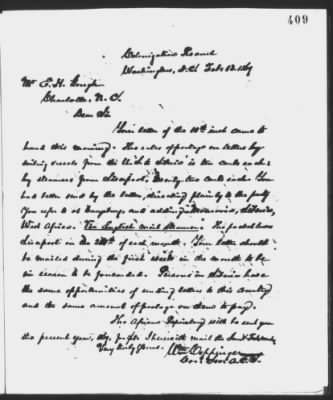 409
Colonization Rooms
Washington, D.C. Feb 13. 186
Mr E. H.
Charlotte, N.C.
Dear Sir
Your letter of the 10th inst came to
hand this morning. The rates of postage on letters by
sailing vessels from the U. States to Liberia is ten cents each:
by steamers from Liverpool, twenty two cents each. You
had better send by the latter, directing plainly to the party
You refer to at and adding Monrovia, Liberia,
West Africa: Via English mail Steamer. The packet leaves
Liverpool on the 24th of each month. Your letter should
be mailed during the first week in the month to be
in season to be forwarded. Persons in Liberia have
the same opportunities of sending letters to this country
and the same amount of postage on them to pay.
The African Repository will be sent you
the present year, I herewith mail the Jan &
Very truly yours. Wm Coppinger
Cor. Sec. A.C.S.